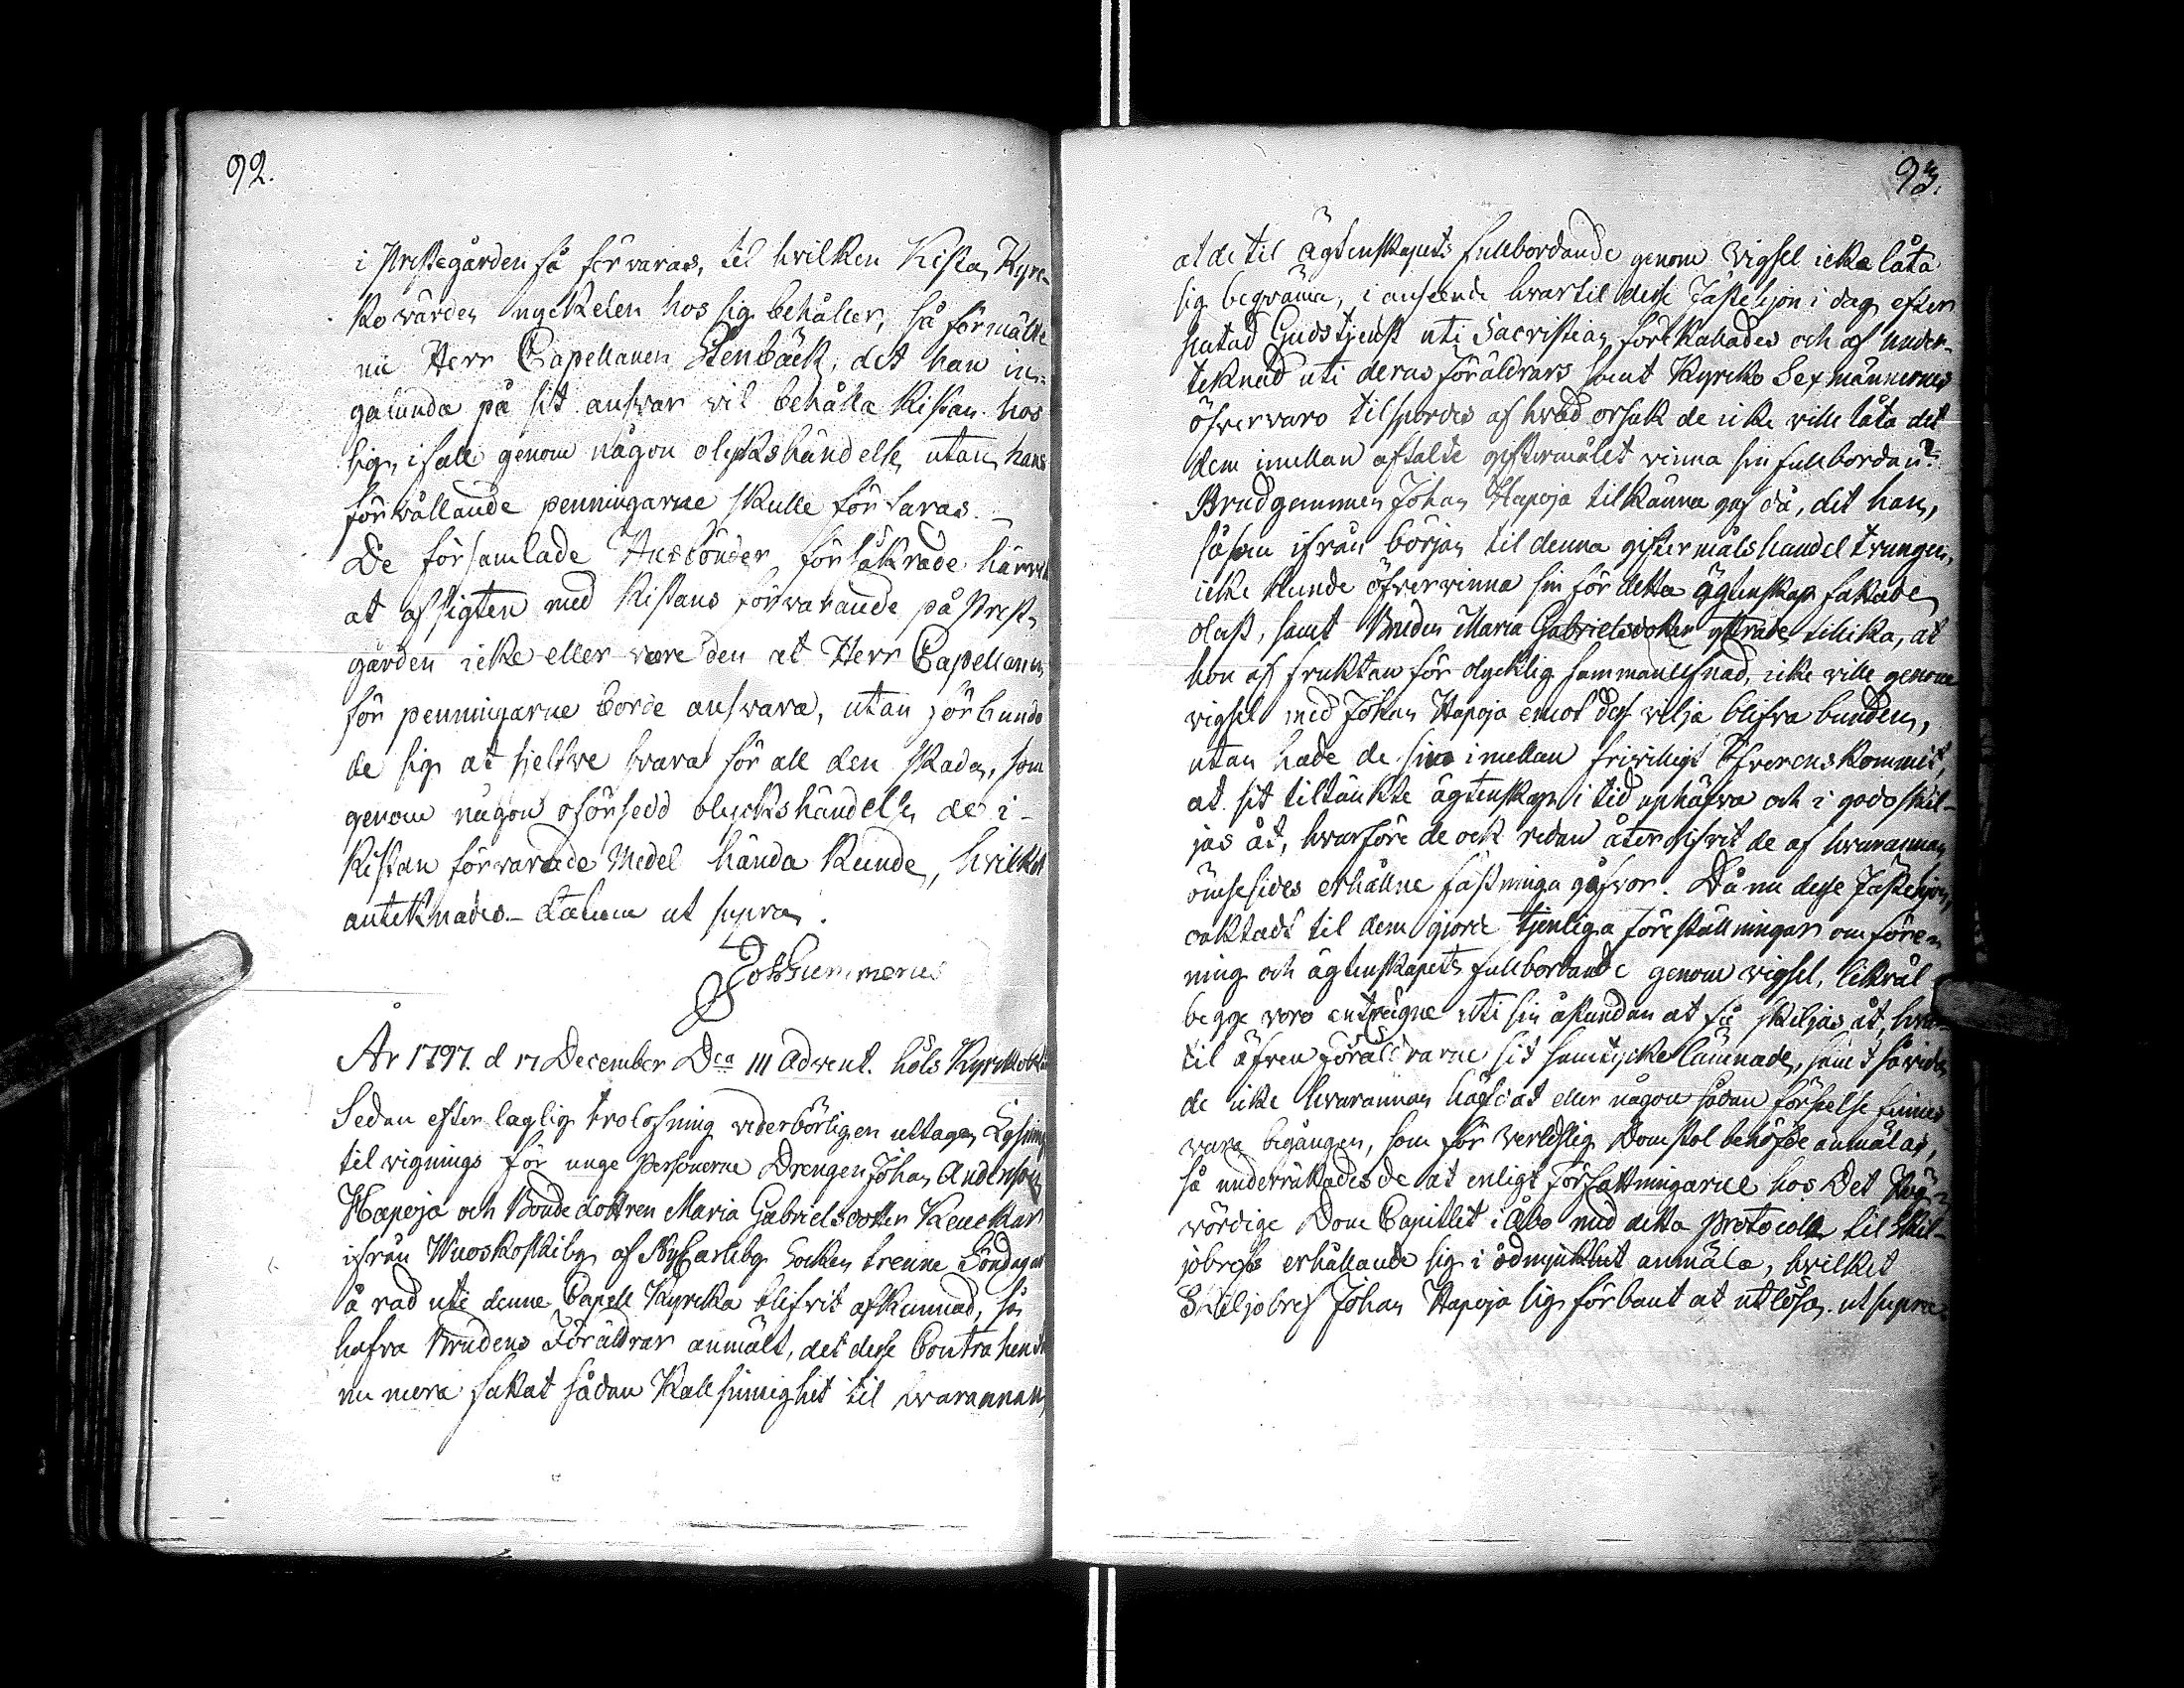 92.
i Prestegården få förvaras, til hvilken Kista, Kyrc-
kovärden nyckelen hos sig behåller, så förmälte
nu Herr Capellanen Stenbäck, det han in-
galunda på sit answar vil behålla kistan hos
sig, ifall genom någon olyckshändelse, utan hans
förvållande penningarne skulle förfaras.
De församlade Husbönder försäkrade härvid
at afsigten med kistans förvarande på Prest-
gården icke eller vore den at Herr Capellanen
för penningarne borde answara, utan förbundo
de sig at sjelfwe svara för all den skada, som
genom någon oförsedd olyckshändelse, de i
Kistan förvarade Medel hända kunde, hvilket
anteknades. Datum ut supra.
Joh Gummerus
År 1797. d 17 December D:ca III Advent. höls Kyrckob
Sedan efter laglig trolofning vederbörligen uttagen Lysning
til vignings för unge Personerne Drengen Johan Andersson
Hapoja och Bonde dottren Maria Gabrielsdotter Keuckar
ifrån Wuoskoskiby af NyCarleby Socken trenne Söndagar
å rad uti denne Capell Kyrcka blifvit afkunnad, så
hafva Brudens Föräldrar anmält, det desse Contrahenter
nu mera fattat sådan Kallsinnighet til hvarannan,
93.
at de til Ägtenskapets fullbordande genom vigsel icke låta
sig beqväma, i anseende hvartil desse Fästehjon i dag efter
slutad Gudstjenst uti Sacristian förekallades och af under-
teknad uti deras föräldrars samt Kyrcko Sexmännernes
öfvervaro tilspordes af hvad orsak de icke ville låta det
dem imellan aftalte giftermålet vinna sin fullbordan?
Brudgummen Johan Hapoja tilkänna gaf då, det han,
såsom ifrån början til denna giftermålshandel tvungen,
icke kunde öfvervinna sin för detta Ägtenskap fattade
olust, samt Bruden Maria Gabrielsdotter yttrade tillika, at
hon af fruktan för olycklig sammanlefnad, icke ville genom
vigsel med Johan Hapoja emot dess vilja blifva bunden,
utan hade de sins imellan frivilligt öfverenskommit,
at sit tiltänkte ägtenskap i tid uphäfva och i godo skil-
jas åt, hvarföre de ock redan återgifvit de af hvarannan
ömsesides erhållne fästninga gåfvor. Då nu desse Fästehjon,
oaktadt til dem gjorde tjenliga föreställningar om före-
ning och ägtenskapets fullbordande genom vigsel, likväl
begge voro enträgne uti sin åstundan at få skiljas åt, hvar
til äfven Föräldrarne sit samtycke lämnade, samt såvida
de icke hvarannan häfdat eller någon sådan förseelse finnes
vara begången, som för Verldslig Domstol behöfde anmälas,
så underrättades de at enligt Författningarne hos Det Hög-
vördige Dom Capitlet i Åbo med detta Protocoll til Skil-
jobrefs erhållande sig i ödmjukhet anmäla, hvilket
Skiljobref Johan Hapoja sig förbant at utlösa. ut supra.